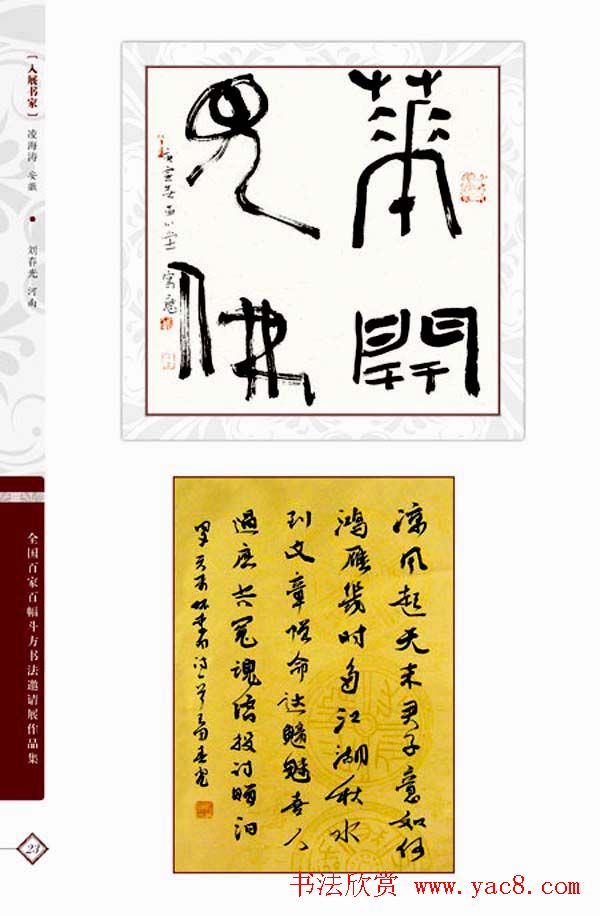 [入展书家] 凌海涛 安徽 • 刘春光 河南
全国百家百幅斗方书法邀请展作品集
23
華開
見佛
凉风起天末君子意如何
鸿雁幾时多江湖秋水
到文章憎命达魑魅喜人
過应共冤魂语投诗赠汨
罗 天末怀李白诗一首 春光
书法欣赏 www.yac8.com